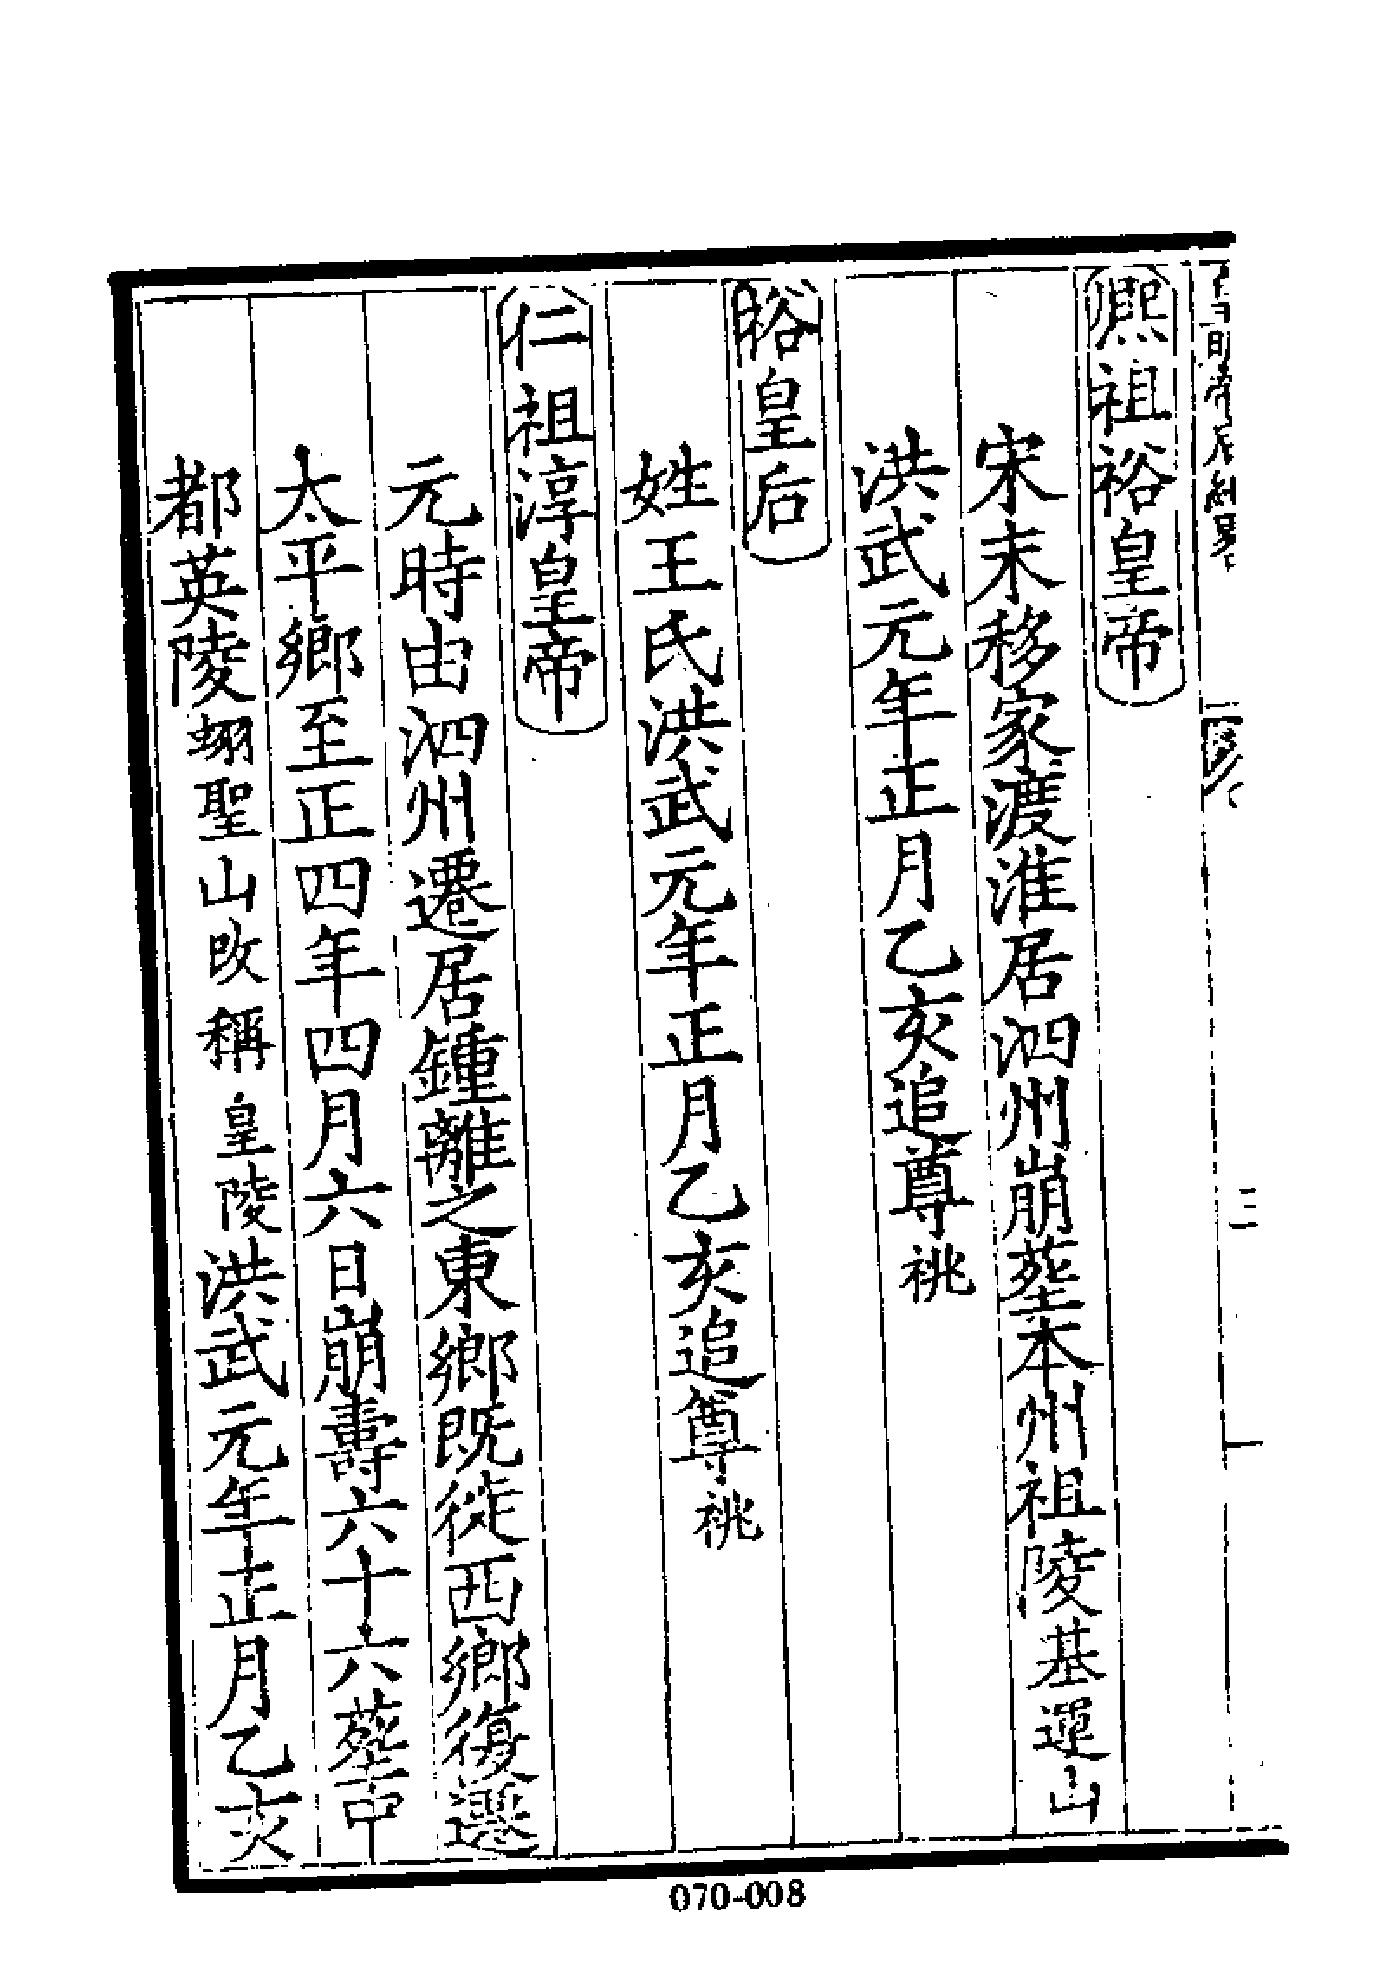 熙祖裕皇帝
宋末移家渡淮居泗州崩塟本州祖陵基運山
洪武元年正月乙亥追尊祧
裕皇后
姓王氏洪武元年正月乙亥追尊祧
仁祖淳皇帝
元時由泗州遷居鍾離之東鄉既徙西鄉復遷
太平鄉至正四年四月六日崩壽六十六塟中
都英陵翊聖山改稱皇陵洪武元年正月乙亥
070-008